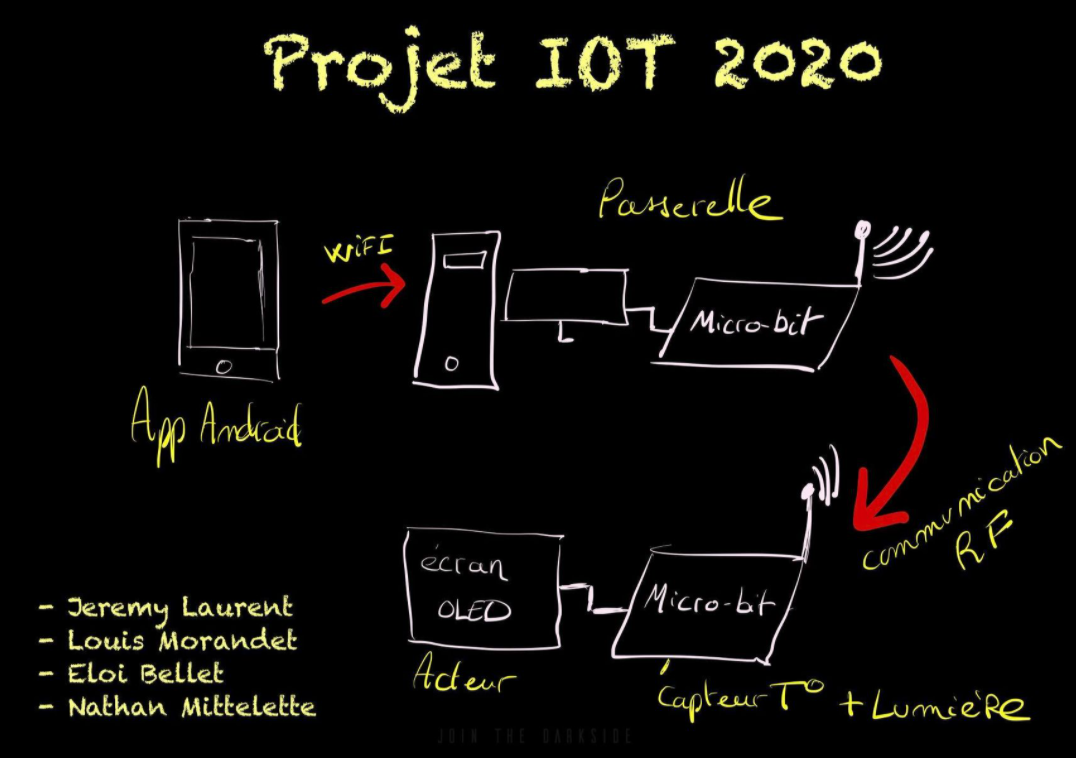 Projet IOT 2020
Passerelle
WiFI
Micro-bit
App Android
communication
RF
écran
OLED
Micro-bit
Acteur
Capteur T° + Lumière
- Jeremy Laurent
- Louis Morandet
- Eloi Bellet
- Nathan Mittelette
JOIN THE DARKSIDE